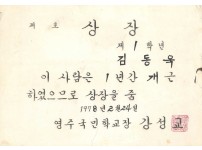 제 호 상 장
제 1 학년
김 동 욱
이 사람은 1년간 개근
하였으므로 상장을 줌
1978년 2월 24일
영주국민학교장 강 성